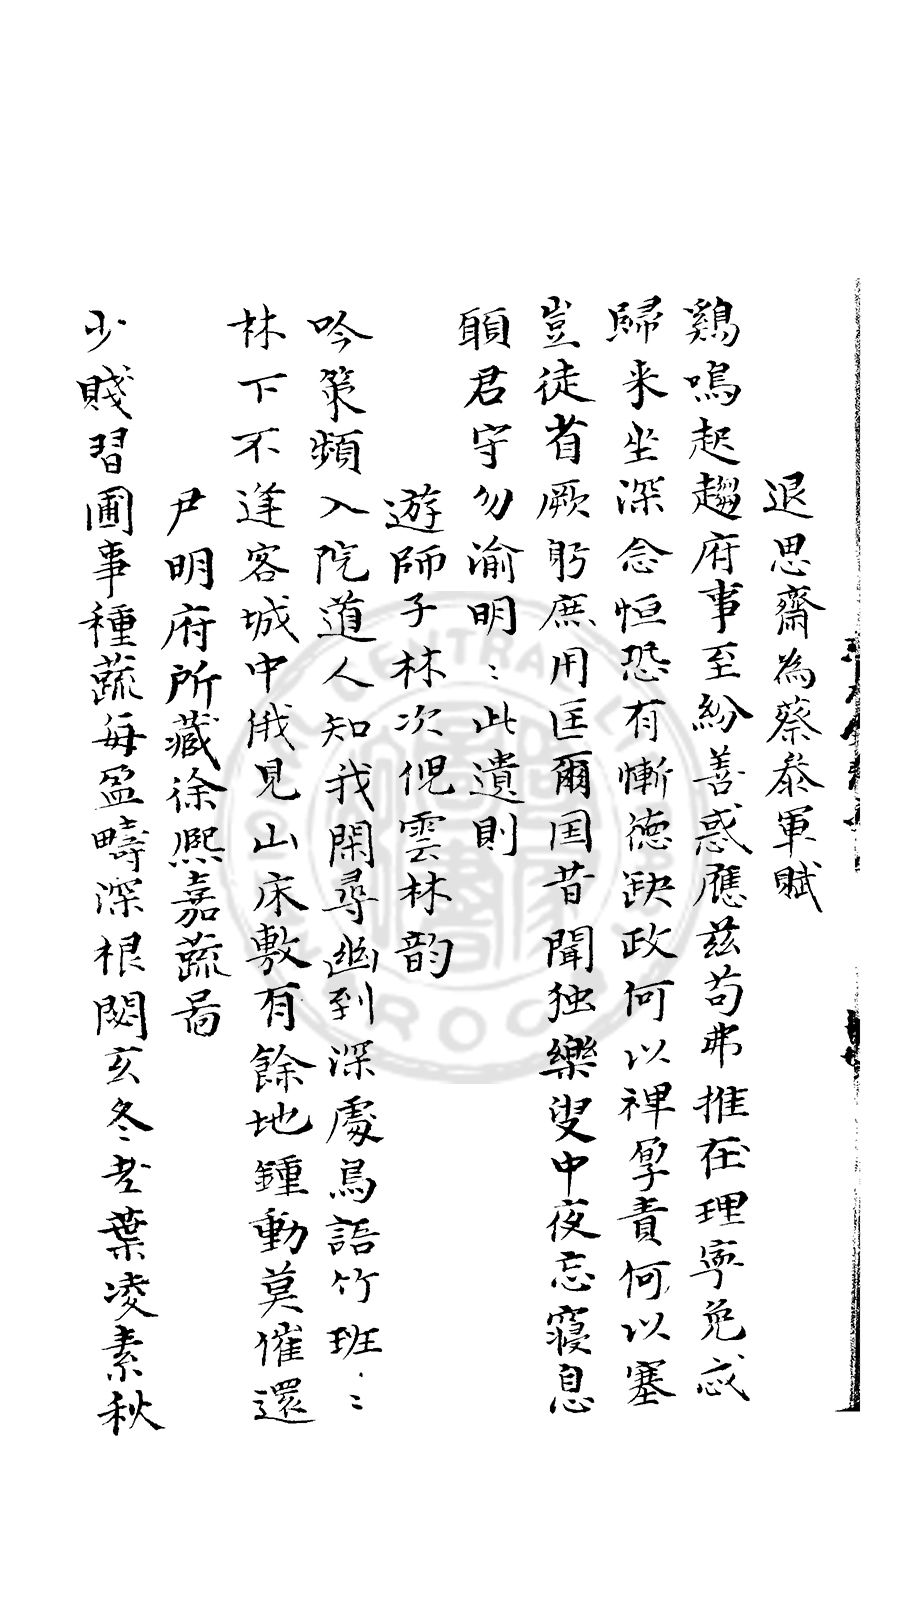 退思齋為蔡叅軍賦
鷄鳴起趨府事至紛善惑應茲苟弗推在理寧免忒
歸来坐深念恒恐有慚德缺政何以裨厚責何以塞
豈徒省厥躬庶用匡爾國昔聞独樂叟中夜忘寢息
願君守勿渝明〻此遺則
遊師子林次倪雲林韵
吟策頻入院道人知我閑尋幽到深處鳥語竹班〻
林下不逢客城中俄見山床敷有餘地鍾動莫催還
尹明府所藏徐熙嘉蔬啚
少賤習圃事種蔬每盈疇深根閟玄冬老葉凌素秋
CENTRAL LI
R.O.C.